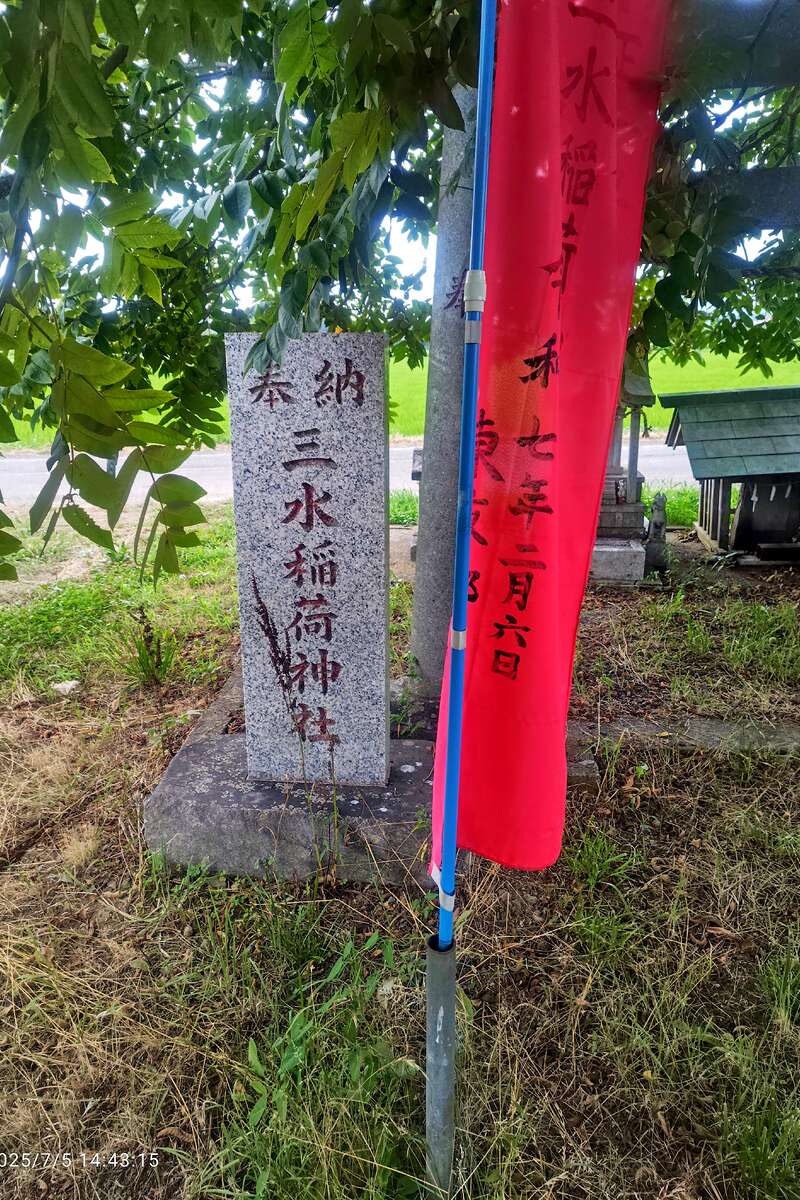 奉納
三水稲荷神社
奉
三水稲荷
令和七年二月六日
2025/7/5 14:43:15